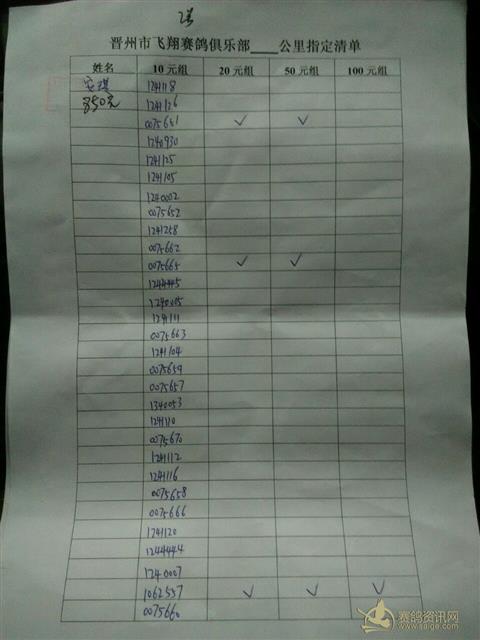 晋州市飞翔赛鸽俱乐部____公里指定清单
姓名 10元组 20元组 50元组 100元组
安琪 1241118
850元 1241126
0075651 ✓ ✓
1240930
1241125
1241105
1240002
0075652
1241258
0075662
0075665 ✓ ✓
1244445
1240005
1241111
0075663
1241104
0075659
0075657
1340053
1241110
0075670
1241112
1241116
0075658
0075666
1241120
1244444
1240007
1062557 ✓ ✓ ✓
0075660
赛鸽资讯网
www.saige.com